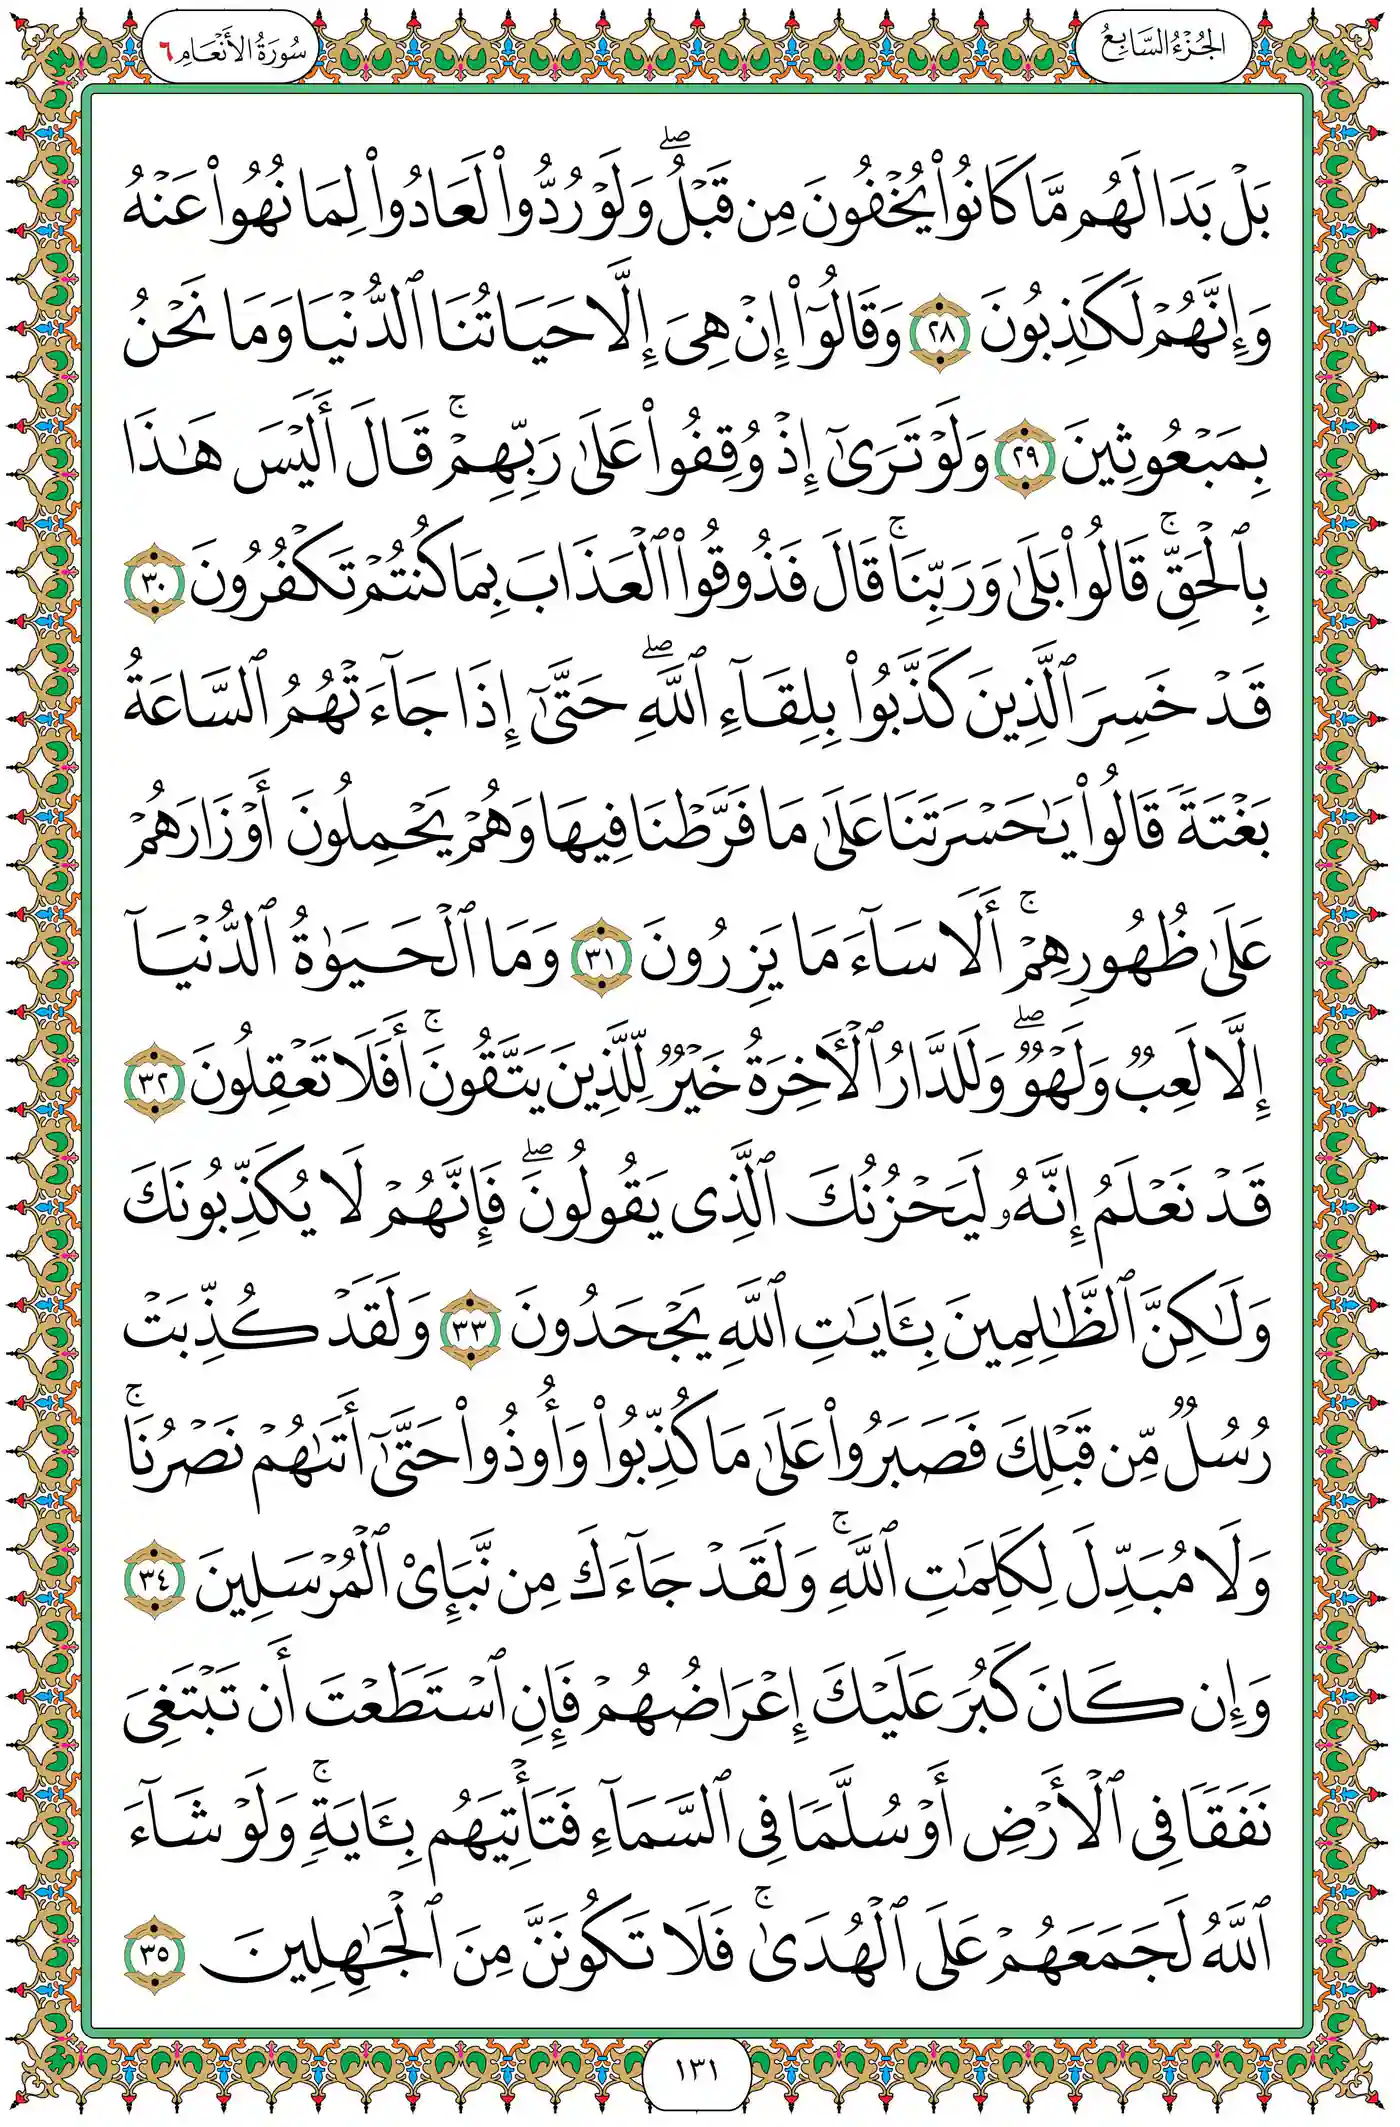 الجُزْءُ السَّابِعُ
سُورَةُ الأَنْعَامِ ٦
بَلْ بَدَا لَهُم مَّا كَانُوا۟ يُخْفُونَ مِن قَبْلُ ۖ وَلَوْ رُدُّوا۟ لَعَادُوا۟ لِمَا نُهُوا۟ عَنْهُ
وَإِنَّهُمْ لَكَـٰذِبُونَ ٢٨ وَقَالُوٓا۟ إِنْ هِىَ إِلَّا حَيَاتُنَا ٱلدُّنْيَا وَمَا نَحْنُ
بِمَبْعُوثِينَ ٢٩ وَلَوْ تَرَىٰٓ إِذْ وُقِفُوا۟ عَلَىٰ رَبِّهِمْ ۚ قَالَ أَلَيْسَ هَـٰذَا
بِٱلْحَقِّ ۚ قَالُوا۟ بَلَىٰ وَرَبِّنَا ۚ قَالَ فَذُوقُوا۟ ٱلْعَذَابَ بِمَا كُنتُمْ تَكْفُرُونَ ٣٠
قَدْ خَسِرَ ٱلَّذِينَ كَذَّبُوا۟ بِلِقَآءِ ٱللَّهِ ۖ حَتَّىٰٓ إِذَا جَآءَتْهُمُ ٱلسَّاعَةُ
بَغْتَةً قَالُوا۟ يَـٰحَسْرَتَنَا عَلَىٰ مَا فَرَّطْنَا فِيهَا وَهُمْ يَحْمِلُونَ أَوْزَارَهُمْ
عَلَىٰ ظُهُورِهِمْ ۚ أَلَا سَآءَ مَا يَزِرُونَ ٣١ وَمَا ٱلْحَيَوٰةُ ٱلدُّنْيَآ
إِلَّا لَعِبٌ وَلَهْوٌ ۖ وَلَلدَّارُ ٱلْـَٔاخِرَةُ خَيْرٌ لِّلَّذِينَ يَتَّقُونَ ۚ أَفَلَا تَعْقِلُونَ ٣٢
قَدْ نَعْلَمُ إِنَّهُۥ لَيَحْزُنُكَ ٱلَّذِى يَقُولُونَ ۖ فَإِنَّهُمْ لَا يُكَذِّبُونَكَ
وَلَـٰكِنَّ ٱلظَّـٰلِمِينَ بِـَٔايَـٰتِ ٱللَّهِ يَجْحَدُونَ ٣٣ وَلَقَدْ كُذِّبَتْ
رُسُلٌ مِّن قَبْلِكَ فَصَبَرُوا۟ عَلَىٰ مَا كُذِّبُوا۟ وَأُوذُوا۟ حَتَّىٰٓ أَتَىٰهُمْ نَصْرُنَا ۚ
وَلَا مُبَدِّلَ لِكَلِمَـٰتِ ٱللَّهِ ۚ وَلَقَدْ جَآءَكَ مِن نَّبَإِى۟ ٱلْمُرْسَلِينَ ٣٤
وَإِن كَانَ كَبُرَ عَلَيْكَ إِعْرَاضُهُمْ فَإِنِ ٱسْتَطَعْتَ أَن تَبْتَغِىَ
نَفَقًا فِى ٱلْأَرْضِ أَوْ سُلَّمًا فِى ٱلسَّمَآءِ فَتَأْتِيَهُم بِـَٔايَةٍ ۚ وَلَوْ شَآءَ
ٱللَّهُ لَجَمَعَهُمْ عَلَى ٱلْهُدَىٰ ۚ فَلَا تَكُونَنَّ مِنَ ٱلْجَـٰهِلِينَ ٣٥
١٣١